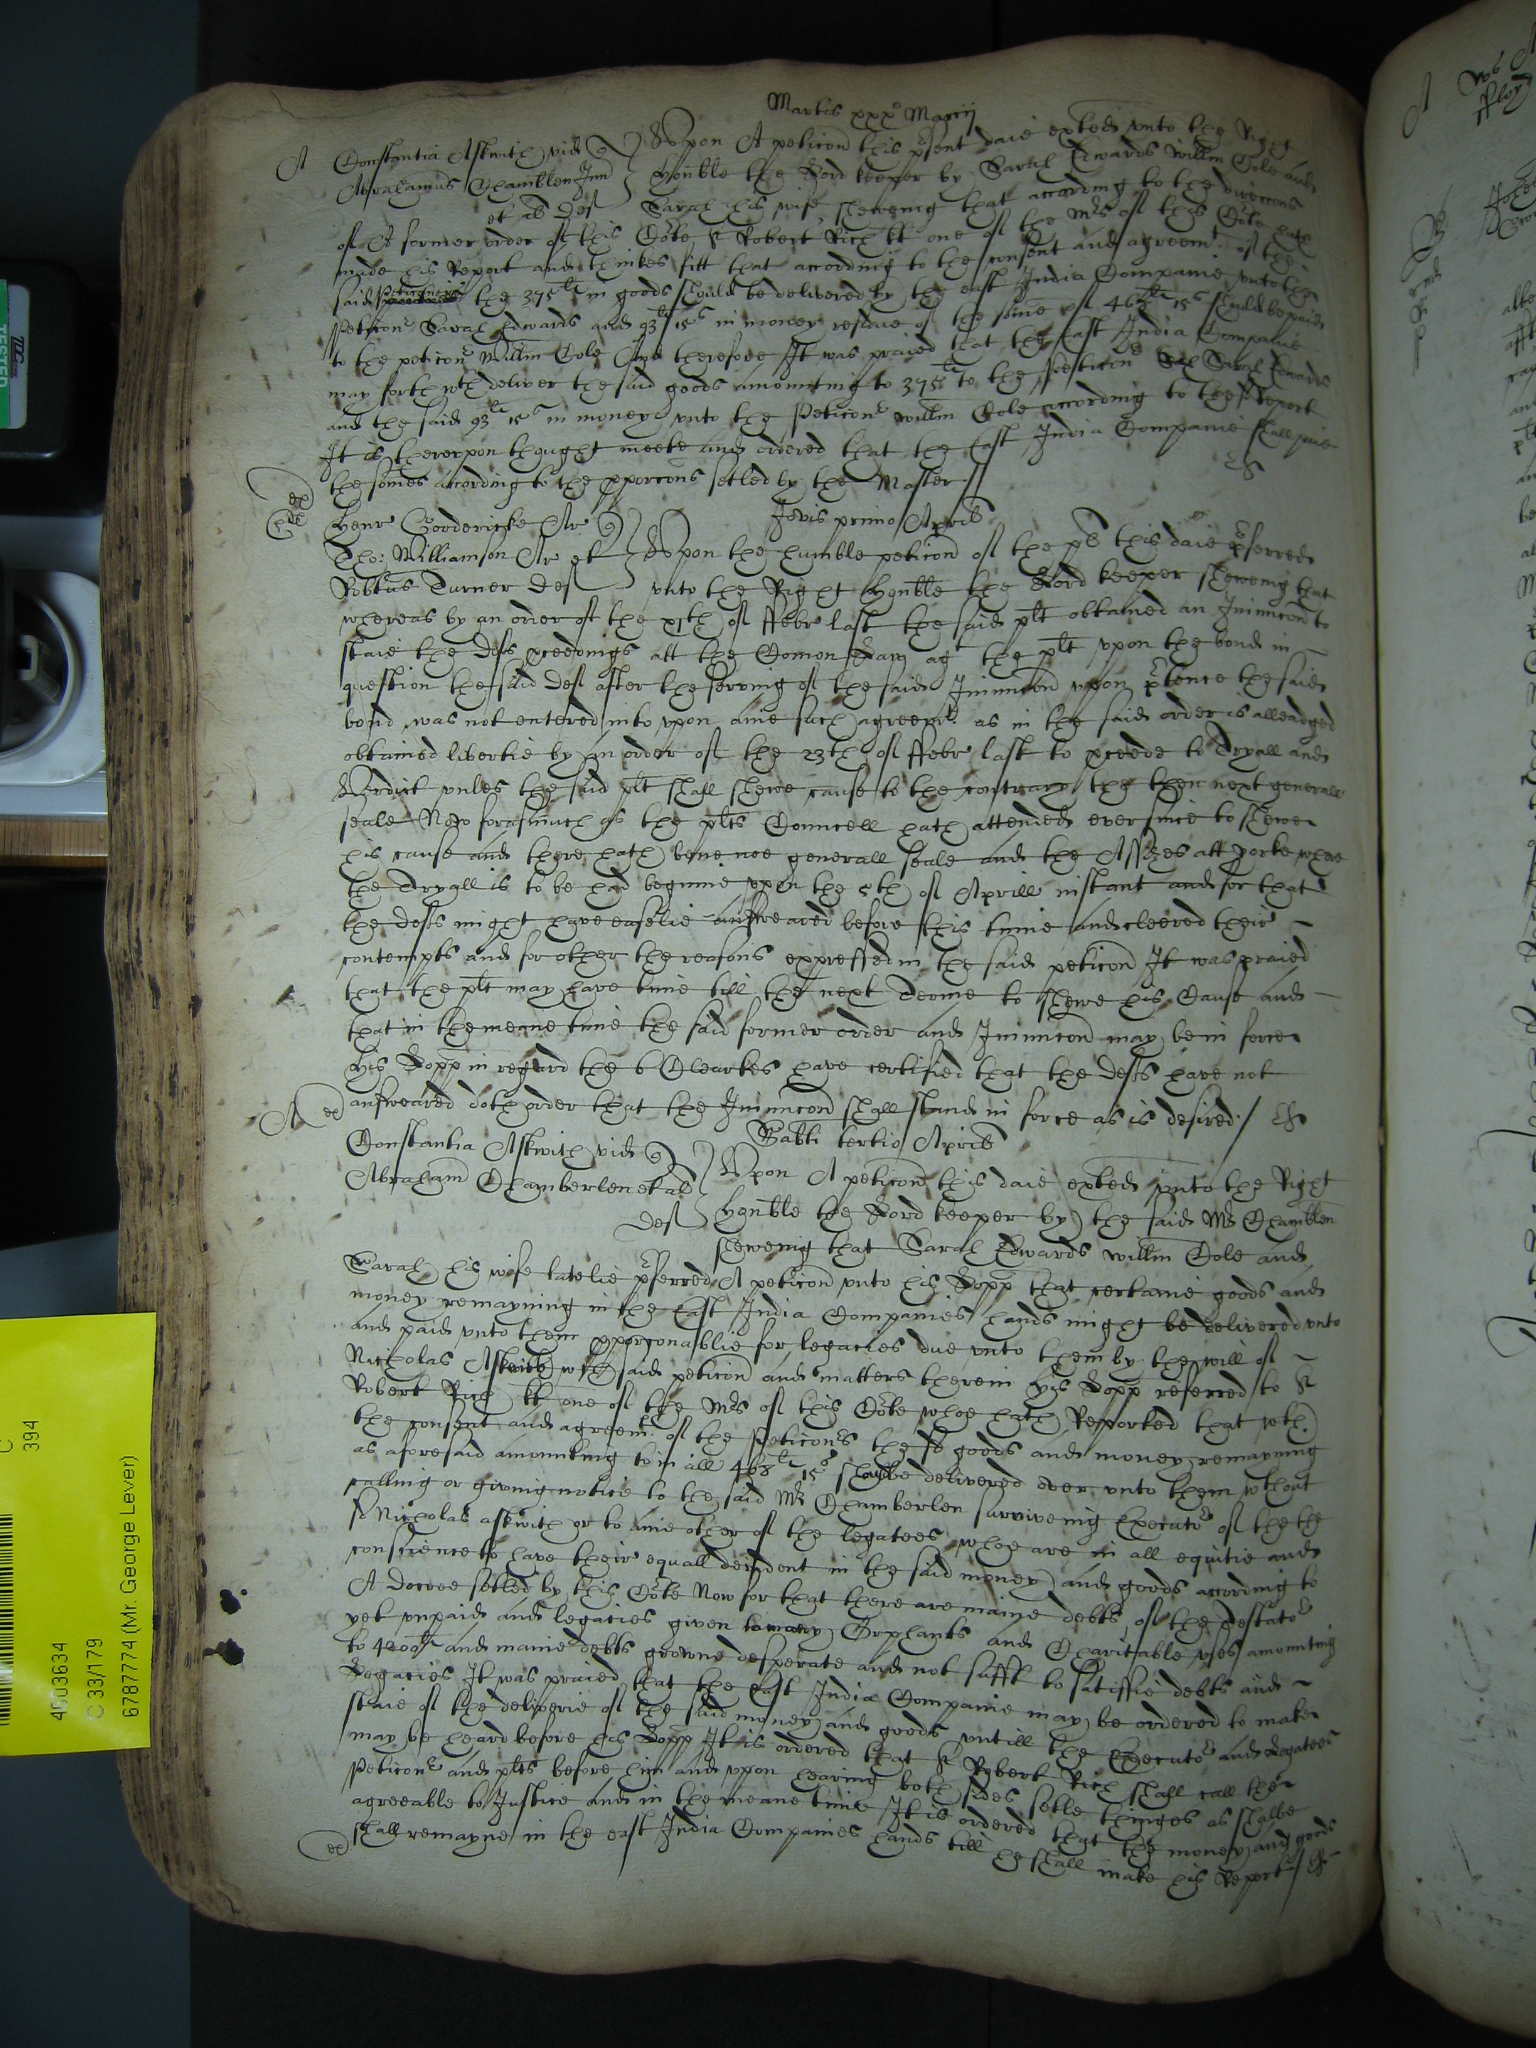 Martis xxx° Marcij
A Constantia Askwith vid
Abrahamus Chamblen Jun
et al Def
Upon A peticon this psent daie exted unto the Right
Honble the Lord keeper by Sarah Edwards Willm Cole and
Sarah his wife shewing that according to the direccons
of A former order of this Cote Sr Robert Rich kt one of the Mrs of this Cote hath
made his Report and thinkes fitt that according to the consent and agreemt of the
said the 375li in goods should be delivered by the east India Companie unto the
Peticonr Sarah Edwards and 93li 15s in money residue of the some of 468li 15s should be paid
to the peticonr Willm Cole And therefore It was praied that the East India Companie
may forthwth deliver the said goods amounting to 375li to the Peticonr Sarah Edwards
and the said 93li 15s in money unto the Peticonr willm Cole according to the Report
It is thereupon thought meete and ordered that the East India Companie shall paie
the somes according to the pporcons setled by the Master
Jovis primo Aprilis
Henr Gooderick Ar
Tho: Williamson Ar et
Robtus Turner Def
Upon the humble peticon of the pl this daie pferred
unto the Right Honble the Lord keeper shewing that
whereas by an order of the xjth of ffebr last the said plt obtained an Iniunccon to
staie the Defts pceedings att the Comon Law ag the plt upon the bond in
question the said Deft after the serving of the said Iniunccon upon ptence the said
bond was not entered into upon anie such agreemt as in the said order is alleadged
obtained libertie by an order of the 23th of ffebr last to pceede to Tryall and
Verdict unles the said plt shall shewe cause to the contrary the then next generall
seale Now forasmuch as the plts Councell hath attended ever since to shewe
his cause and there hath bene noe generall seale and the Assizes att Yorke where
the Tryall is to be had beginne upon the 5th of Aprill instant and for that
the defts might have easelie answeared before this time and cleered their
contempts and for other the reasons expressed in the said peticon It was praied
that the plt may have time till the next Terme to shewe his Cause and
that in the meane time the said former order and Iniunccon may be in force
His Lopp in regard the 6 Clearkes have certified that the Defts have not
answeared doth order that the Iniunccon shall stand in force as is desired
A Sabti tertio Aprilis
Constantia Askwith vid
Abraham Chamberlen et al
Def
Upon A peticon this daie exted unto the Right
Honble the Lord keeper by the said Mr Chamblen
shewing that Sarah Edwards willm Cole and
Sarah his wife latelie pferred A peticon unto his Lopp that certaine goods and
money remayning in the East India Companies hands might be delivered unto
and paid unto them pporconablie for legacies due unto them by the will of
Nicholas Askwith wch said peticon and matters therein His Lopp referred to Sr
Robert Rich kt one of the Mrs of this Cote whoe hath Reported that wth
the consent and agreemt of the Peticoners the sd goods and money remayning
as aforesaid amounting to in all 468li 15s shalbe delivered over unto them wthout
calling or giving notice to the said Mr Chamberlen surviveing Executor of the
sd Nicholas askwith or to anie other of the legatees whoe are in all equitie and
conscience to have their equall devident in the said money and goods according to
A decree setled by this Cote Now for that there are manie debts of the Testators
yet unpaid and legacies given to many Orphants and Charitable uses amounting
to 4200li and manie debts growne desperate and not suffi to satisfie debts and
Legacies It was praied that the East India Companie may be ordered to make
staie of the deliverie of the said money and goods untill the Executor and Legatees
may be heard before his Lopp It is ordered that Sr Robert Rich shall call the
Peticonrs and plts before him and upon hearing both sides setle thinges as shalbe
agreeable to Justice and in the meane time It is ordered that the money and goods
shall remayne in the east India Companies hands till he shall make his Report
TESTED
C
394
4503634
C 33/179
6787774 (Mr. George Lever)